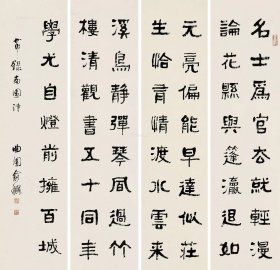 名士為官太輕漫
論花縣與蓬瀛退如
元亮偏能早達似莊
生恰有情渡水雲来
溪鳥靜彈琴風過竹
樓清觀書五十同年
學尤自燈前擁百城
黄録南園詩